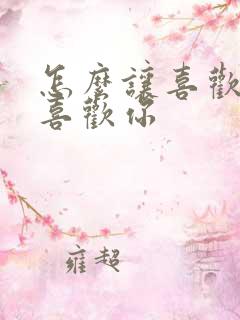 怎麼讓喜歡
喜歡你
雍超